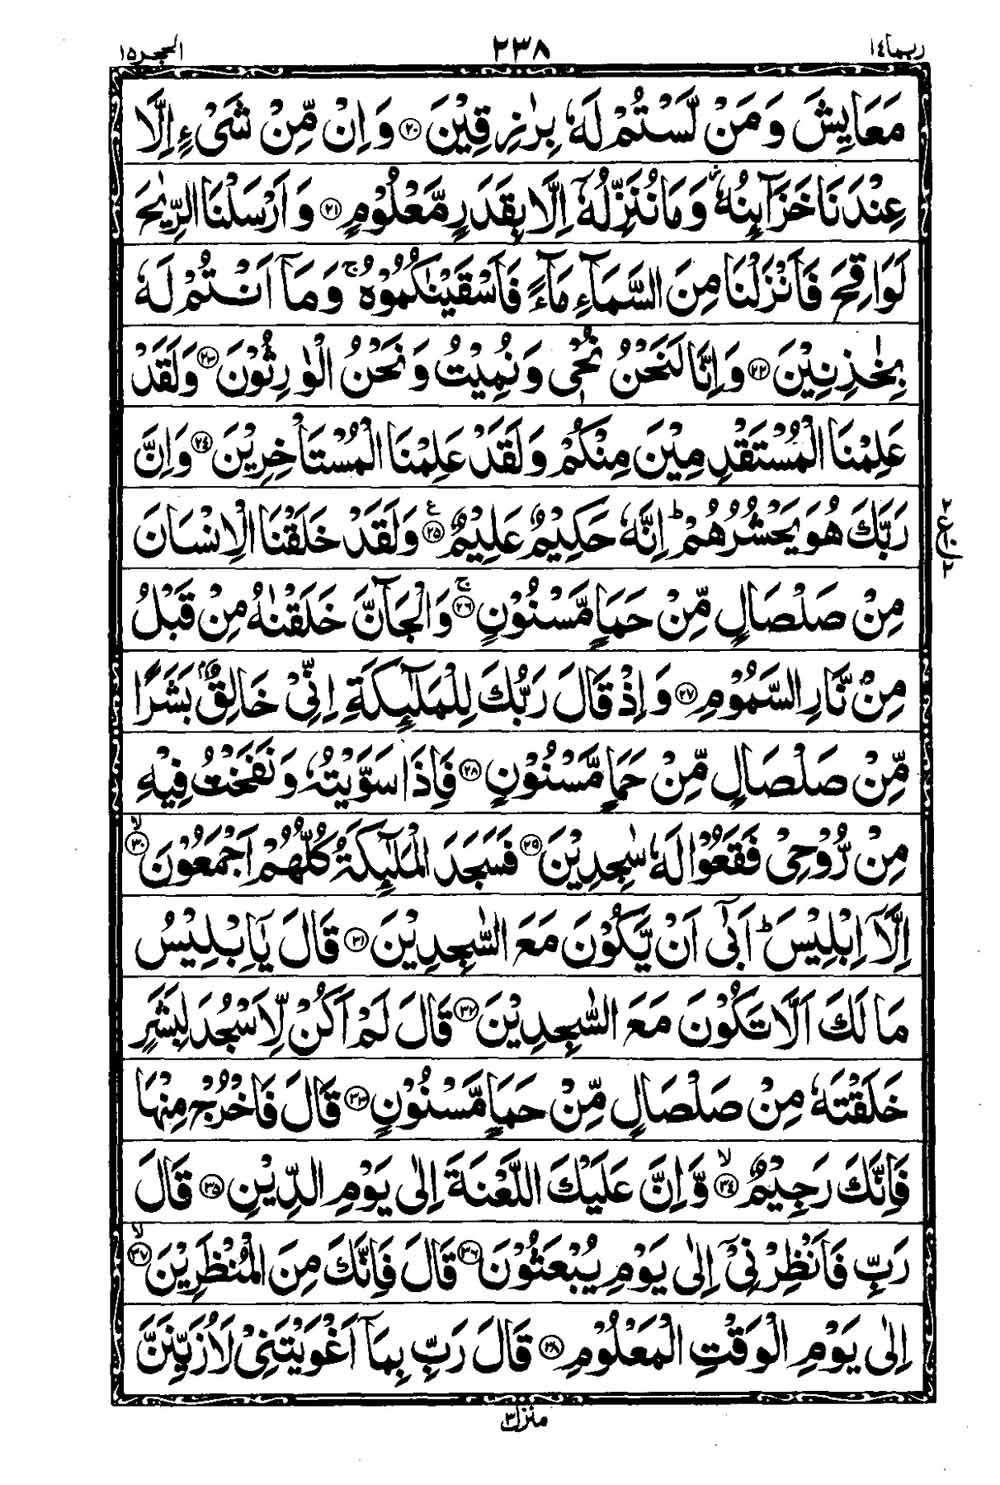 ربما ١٤ ٢٣٨ الحجر ١٥
مَعَايِشَ وَمَنْ لَّسْتُمْ لَهٗ بِرٰزِقِيْنَ ﴿۲۰﴾ وَاِنْ مِّنْ شَیْءٍ اِلَّا
عِنْدَنَا خَزَآئِنُهٗ ؗ وَمَا نُنَزِّلُهٗۤ اِلَّا بِقَدَرٍ مَّعْلُوْمٍ ﴿۲۱﴾ وَاَرْسَلْنَا الرِّیٰحَ
لَوَاقِحَ فَاَنْزَلْنَا مِنَ السَّمَآءِ مَآءً فَاَسْقَیْنٰكُمُوْهُ ۚ وَمَاۤ اَنْتُمْ لَهٗ
بِخٰزِنِیْنَ ﴿۲۲﴾ وَاِنَّا لَنَحْنُ نُحْیٖ وَنُمِیْتُ وَنَحْنُ الْوٰرِثُوْنَ ﴿۲۳﴾ وَلَقَدْ
عَلِمْنَا الْمُسْتَقْدِمِیْنَ مِنْكُمْ وَلَقَدْ عَلِمْنَا الْمُسْتَاْخِرِیْنَ ﴿۲۴﴾ وَاِنَّ
رَبَّكَ هُوَ یَحْشُرُهُمْ ؕ اِنَّهٗ حَكِیْمٌ عَلِیْمٌ ﴿۲۵﴾ ع وَلَقَدْ خَلَقْنَا الْاِنْسَانَ
مِنْ صَلْصَالٍ مِّنْ حَمَاٍ مَّسْنُوْنٍ ﴿۲۶﴾ ۚ وَالْجَآنَّ خَلَقْنٰهُ مِنْ قَبْلُ
مِنْ نَّارِ السَّمُوْمِ ﴿۲۷﴾ وَاِذْ قَالَ رَبُّكَ لِلْمَلٰٓئِكَةِ اِنِّیْ خَالِقٌۢ بَشَرًا
مِّنْ صَلْصَالٍ مِّنْ حَمَاٍ مَّسْنُوْنٍ ﴿۲۸﴾ فَاِذَا سَوَّیْتُهٗ وَنَفَخْتُ فِیْهِ
مِنْ رُّوْحِیْ فَقَعُوْا لَهٗ سٰجِدِیْنَ ﴿۲۹﴾ فَسَجَدَ الْمَلٰٓئِكَةُ كُلُّهُمْ اَجْمَعُوْنَ ﴿۳۰﴾ ۙ
اِلَّاۤ اِبْلِیْسَ ؕ اَبٰۤی اَنْ یَّكُوْنَ مَعَ السّٰجِدِیْنَ ﴿۳۱﴾ قَالَ یٰۤاِبْلِیْسُ
مَا لَكَ اَلَّا تَكُوْنَ مَعَ السّٰجِدِیْنَ ﴿۳۲﴾ قَالَ لَمْ اَكُنْ لِّاَسْجُدَ لِبَشَرٍ
خَلَقْتَهٗ مِنْ صَلْصَالٍ مِّنْ حَمَاٍ مَّسْنُوْنٍ ﴿۳۳﴾ قَالَ فَاخْرُجْ مِنْهَا
فَاِنَّكَ رَجِیْمٌ ﴿۳۴﴾ ۙ وَّاِنَّ عَلَیْكَ اللَّعْنَةَ اِلٰی یَوْمِ الدِّیْنِ ﴿۳۵﴾ قَالَ
رَبِّ فَاَنْظِرْنِیْۤ اِلٰی یَوْمِ یُبْعَثُوْنَ ﴿۳۶﴾ قَالَ فَاِنَّكَ مِنَ الْمُنْظَرِیْنَ ﴿۳۷﴾ ۙ
اِلٰی یَوْمِ الْوَقْتِ الْمَعْلُوْمِ ﴿۳۸﴾ قَالَ رَبِّ بِمَاۤ اَغْوَیْتَنِیْ لَاُزَیِّنَنَّ
منزل ٣